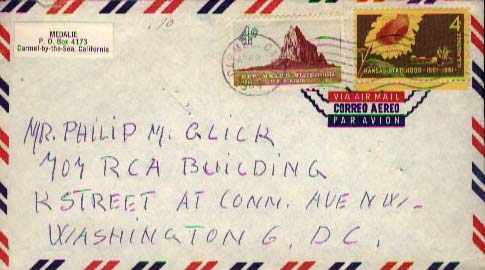 MEDALIE
P. O. Box 4173
Carmel-by-the-Sea, California
10
4¢
NEW MEXICO STATEHOOD
4
KANSAS STATEHOOD 1861-1961
VIA AIR MAIL
CORREO AEREO
PAR AVION
MR. PHILIP M. GLICK
707 RCA BUILDING
K STREET AT CONN. AVE NW.
WASHINGTON 6, D.C.